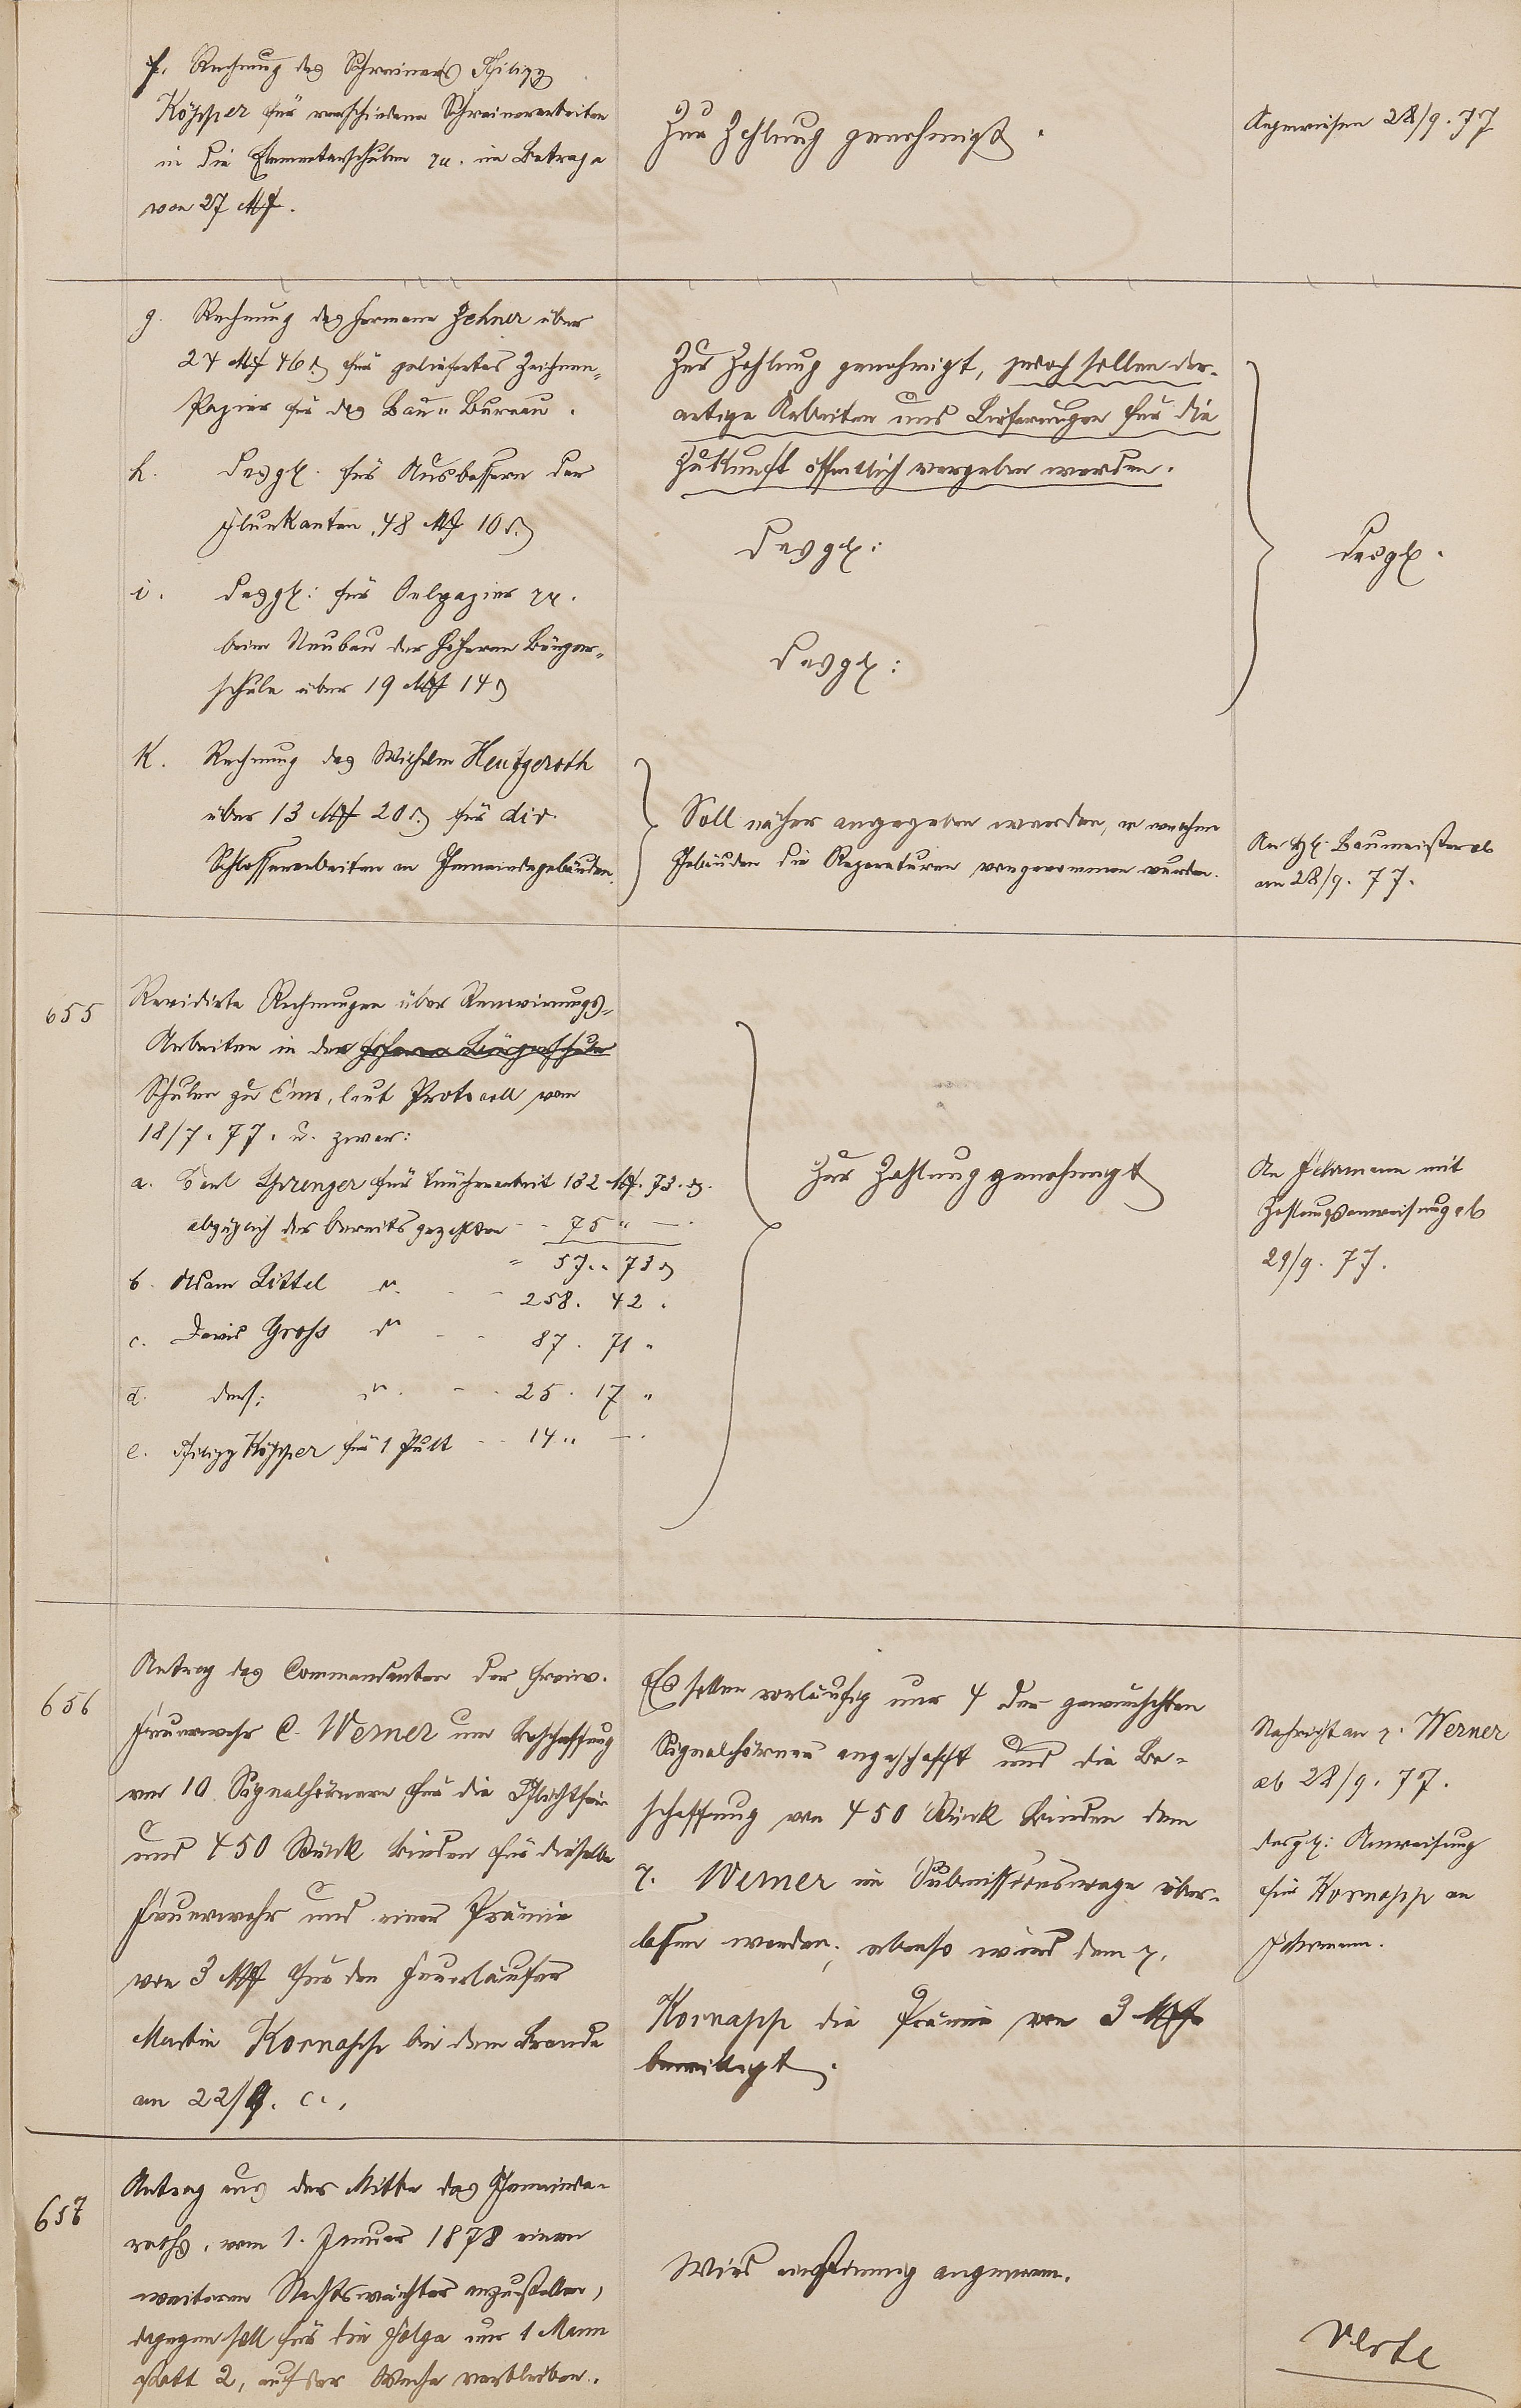 f. Rechnung des Schreiners Philipp
Köpper für verschiedene Schreinerarbeiten
in die Elementarschulen rc. im Betrage
von 27 Mk.
Zur Zahlung genehmigt.
Angewiesen 28/9. 77
g. Rechnung des Hermann Zehner über
24 Mk 46 d für geliefertes Zeichnen-
Papier für das Bau-Bureau.
Zur Zahlung genehmigt, jedoch sollen der-
artige Arbeiten und Lieferungen für die
Zukunft öffentlich vergeben werden.
h. desgl. für Ausbessern der
48 Mk 10 d
desgl:
desgl.
i. desgl: für Oelpapier rc.
beim Neubau der höheren Bürger-
schule über 19 Mk 14 d
desgl:
K. Rechnung des Wilhelm Heutzgeroth
über 13 Mk 20 d für div.
Schlosserarbeiten an Gemeindegebäuden.
Soll näher angegeben werden, an welchen
Gebäuden die Reparaturen vorgenommen wurden.
An H. Baumeister ab
am 28/9. 77.
655
Revidirte Rechnungen über Renovirungs-
Arbeiten in den höheren Bürgerschule
Schulen zu Ems, laut Protocoll vom
18/7. 77. u. zwar:
a. Carl Sprenger für Tüncherarbeit 132 Mk. 73 d.
abzüglich der bereits gezahlten - - 75 " —.
" 57. " 73 d
b. Adam Littel do. - - 258. 42.
c. Davis Gross do - - 87. 71 "
d. ders: do. - - 25. 17 "
e. Philipp Köpper für 1 Pult - - 14 " —.
Zur Zahlung genehmigt
An Fehrmann mit
Zahlungsanweisung ab
29/9. 77.
656
Antrag des Commandanten der freiw.
Feuerwehr C. Werner um Beschaffung
von 10 Signalhörnern für die
und 450 Stück Binden für dieselbe
Feuerwehr und einer Prämie
von 3 Mk für den Feuerläufer
Martin Kornapp bei dem Brande
am 22/9. c.,
Es sollen vorläufig nur 4 der gewünschten
Signalhörner angeschafft und die Be-
schaffung von 450 Stück Binden dem
p. Werner im Submissionswege über-
lassen werden; ebenso wird dem p.
Kornapp die Prämie von 3 Mk
bewilligt.
Nachricht an p. Werner
ab 28/9. 77.
desgl: Anweisung
für Kornapp an
Fehrmann.
657
Antrag aus der Mitte des Gemeinde-
raths, vom 1. Januar 1878 einen
weiteren Nachtwächter anzustellen,
dagegen soll für die Folge nur 1 Mann
statt 2, auf der Wache verbleiben.
Wird einstimmig angenommen.
Verte